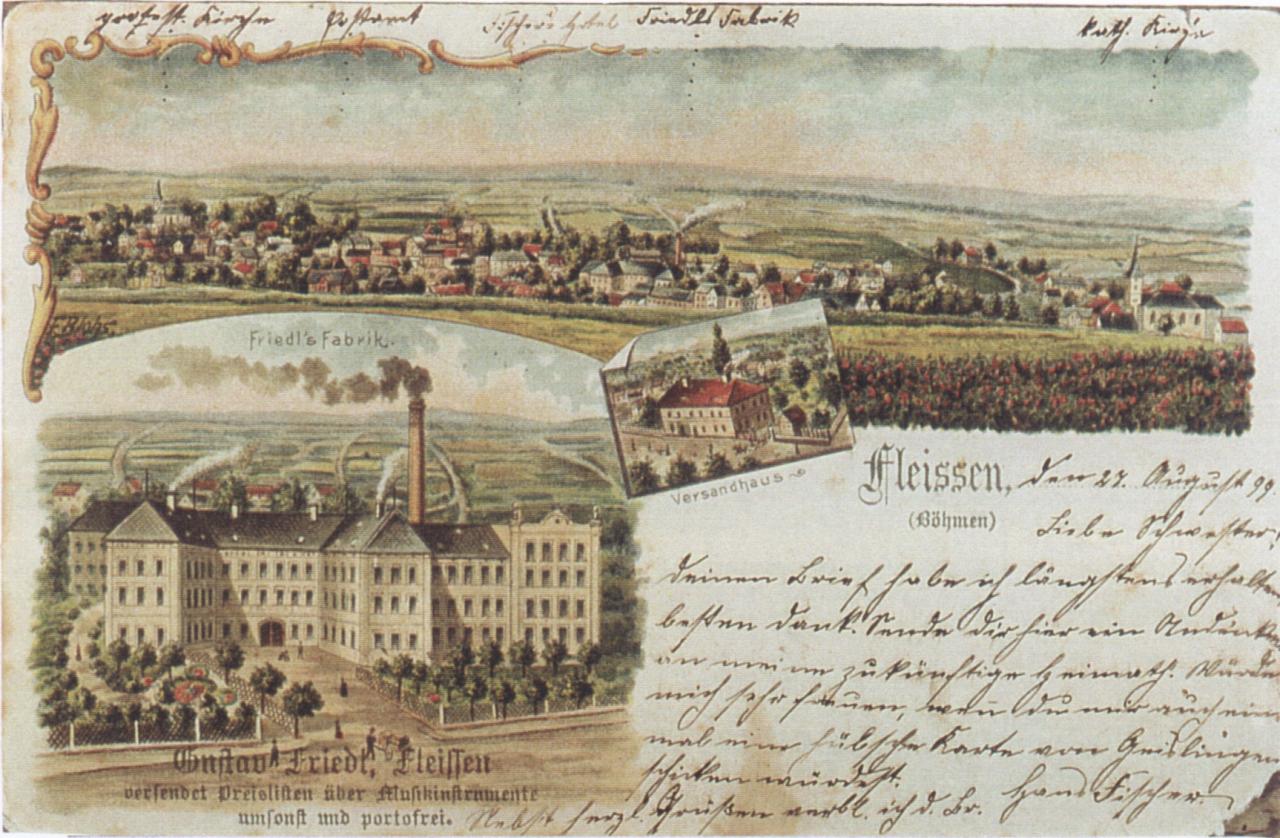 protest. Kirche Postamt Fischers Hotel Friedls Fabrik kath. Kirche
Friedl's Fabrik.
Versandhaus
Fleissen, den 27. August 99
(Böhmen)
Liebe Schwester!
deinen Brief habe ich längstens erhalten
besten Dank. Sende dir hier ein Andenken
an meine zukünftige Heimath. Würde
mich sehr freuen, wen̄ du mir auch ein
mal eine hübsche Karte von Geislingen
schicken würdest.
Nebst herzl. Grüßen verbl. ich d. Br. Hans Fischer.
Gustav Friedl, Fleissen
versendet Preislisten über Musikinstrumente
umsonst und portofrei.